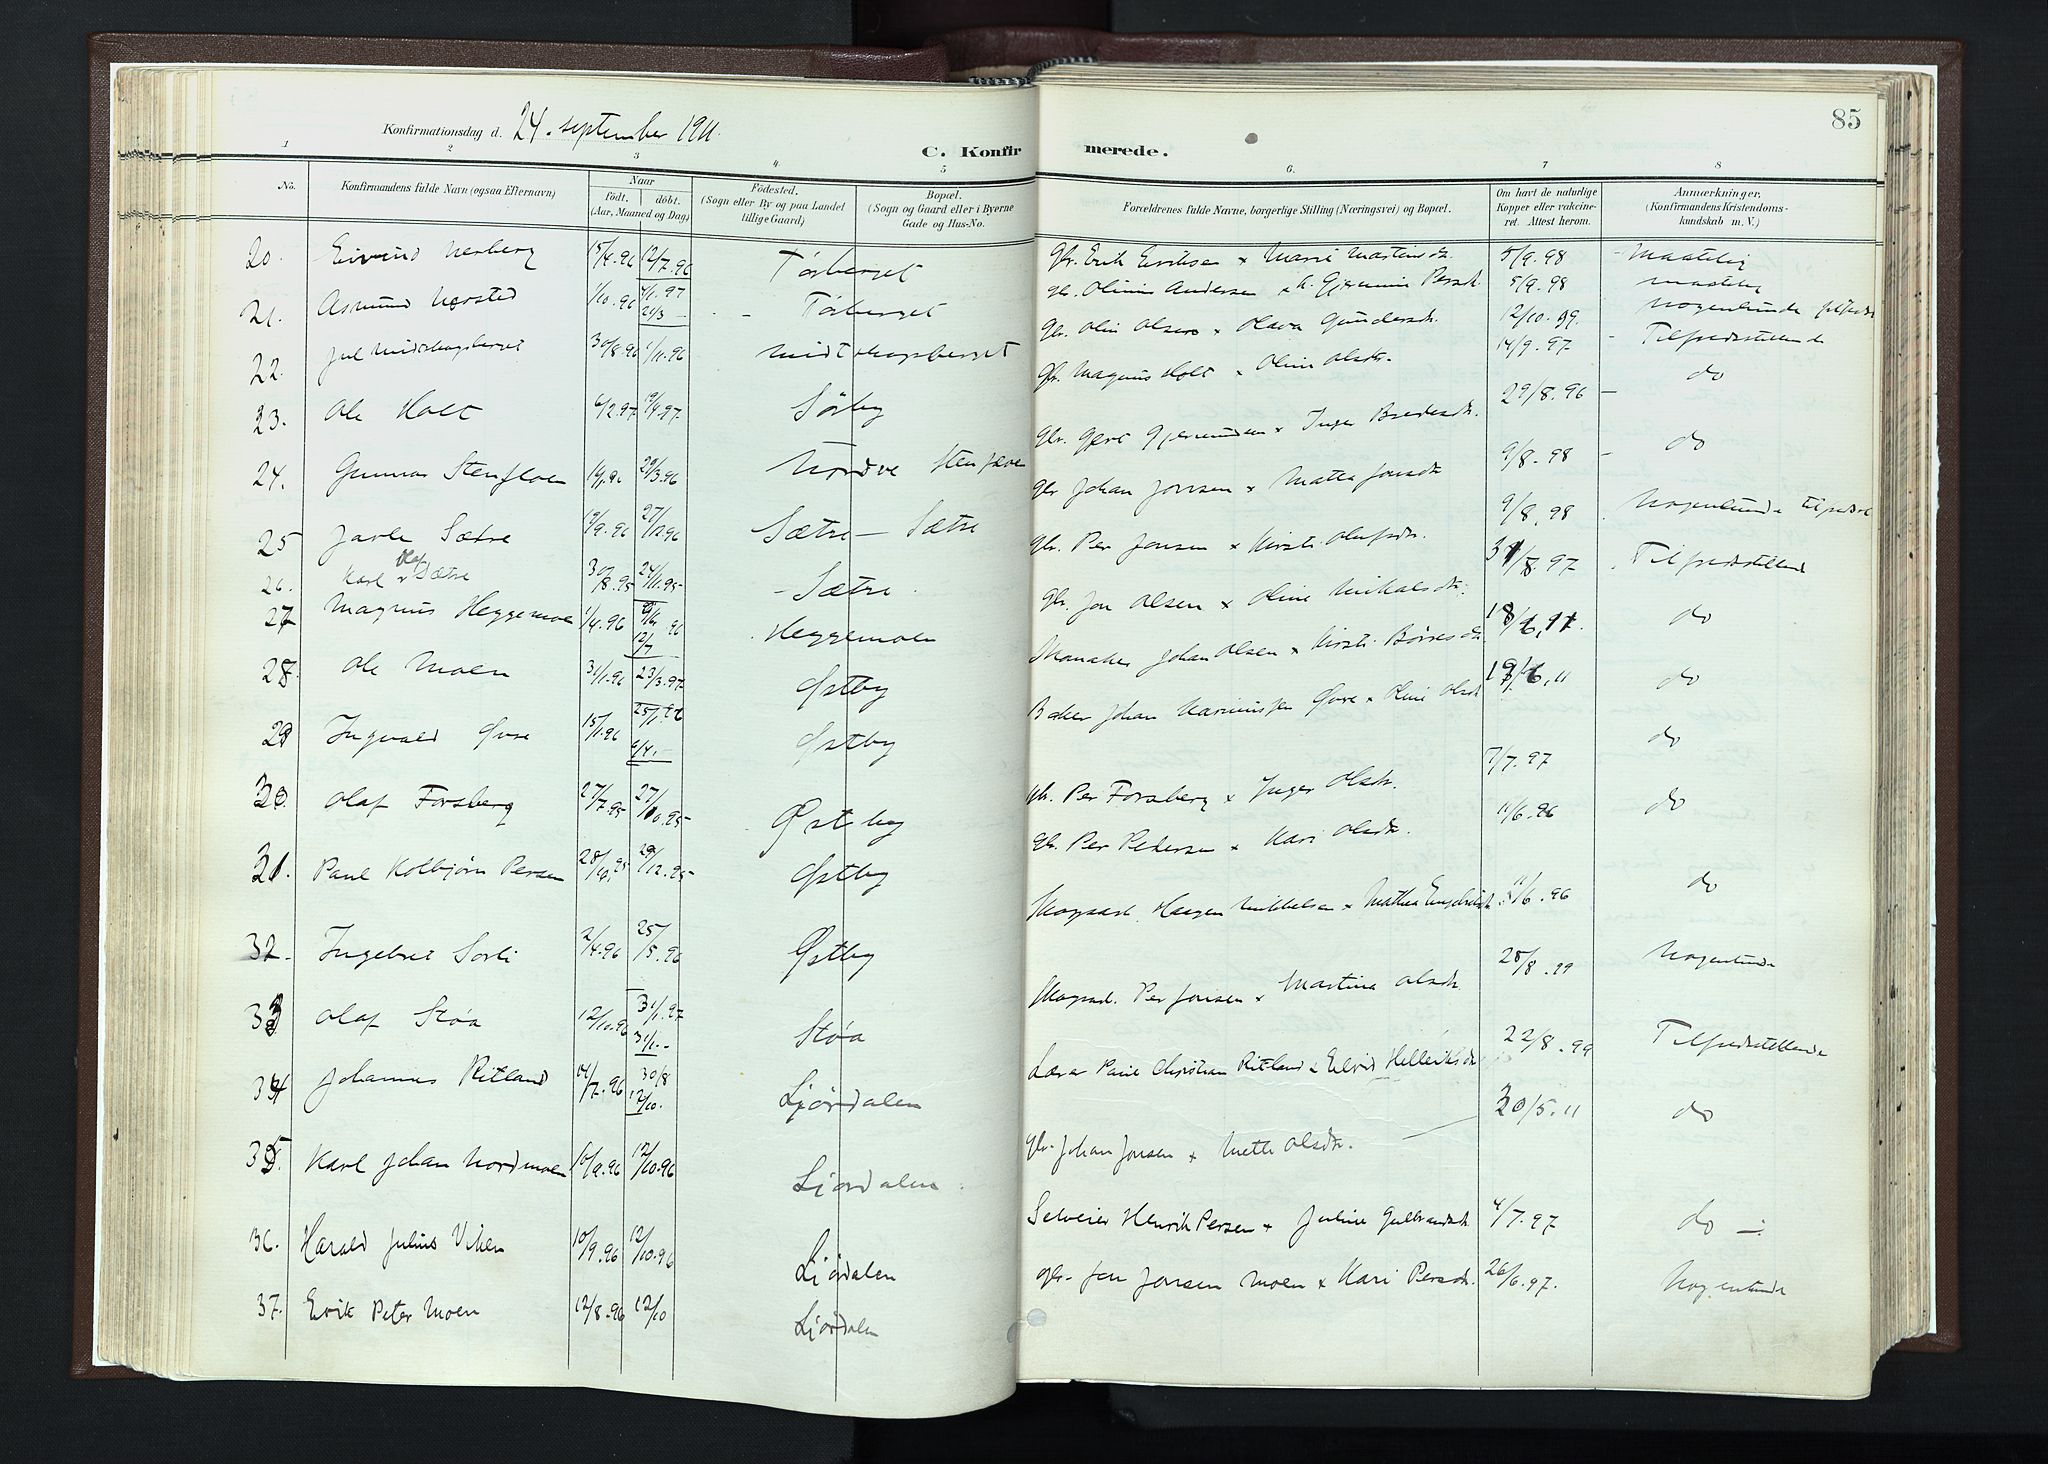 Konfirmationsdag d. 24. september 1911.
85
C. Konfirmerede.
1 2 3 4 5 6. 7 8
No.
Konfirmandens fulde Navn (ogsaa Efternavn)
Naar
født. døbt.
(Aar, Maaned og Dag)
Fødested.
(Sogn eller By og paa Landet
tillige Gaard)
Bopæl.
(Sogn og Gaard eller i Byerne
Gade og Hus-No.
Forældrenes fulde Navne, borgerlige Stilling (Næringsvei) og Bopæl.
Om havt de naturlige
Kopper eller vaccine-
ret. Attest herom.
Anmærkninger.
(Konfirmandens Kristendoms-
kundskab m. V.)
20. Eivind Nerberg 15/4.96 12/7.96 Tørberget Gbr. Erik Eriksen x Marie Martinsdr. 5/9.98 Maatelig
21. Asmund 1/10.96 4/1.97 Tørberget gbr. Olinus Andersen x 5/9.98 maatelig
22. Jul Midtskogsberget 30/8.96 1/11.96 Midtskogsberget Gbr. Olin Olsen x Olava Gundersdr. 12/10.99. Nogenlunde
23. Ole Holt 6/2.97 19/4.97. Sörby Gbr. Magnus Holt x Oline Olsdr. 14/9.97 - Tilfredsstillende
24. Gunnar Stenfloen 16/1.96 29/3.96 Nordre Gbr. Gjert Gjermundsen x Inger Bredesdr. 29/8.96 - do
25 Jarle Sætre 19/9.96 27/12.96 Sætre - Sætre Gbr Johan Jonsen x Matte Jonsdr 9/8.98 - do
26. Karl Olaf Sætre 30/8.95 24/11.95 - Sætre. Gbr. Per Jonsen x Kirsti Olufsdr. 9/8.98 Nogenlunde
27 Magnus Heggemoen 1/4.96 96 12/7 Heggemoen Gbr. Jon Olsen x Oline Mikalsdr. 31/8.97 Tilfredsstillende
28. Ole Moen 31/1.96 23/3.97 Østby Johan Olsen x Kirsti 18/6.11. do
29 Ingvald Øvre 15/1.96 Østby Baker Johan Øvre x Oline Olsdr 19/6.11 do
30. Olaf Forsberg 27/7.95 27/10.95 Østby gbr. Per Forsberg x Inger Olsdr. 7/7.97 do
31. Paul Kolbjørn Persen 28/10.95 29/12.95 Østby gbr. Per Pedersen x Kari Olsdr. 11/6.96 do
32. Ingebret Sorli 2/4.96 25/5.96 Østby Haagen Mikkelsen x Mathea 11/6.96 do
33 Olaf Støa 12/10.96 31/1.97 31/1.- Støa Per Jonsen x Martine Olsdr. 28/8.99 Nogenlunde
34 Johannes Ritland 14/7.96 30/8 12/10. Ljørdalen Lærer Paul Christian Ritland x 22/8.99 Tilfredsstillende
35. Karl Johan Nordmoen 10/9.96 12/10.96 Ljørdalen. gbr. Johan Jonsen x Mette Olsdr. 30/5.11 do
36. Harald Julius Viken 10/9.96 12/10.96 Ljørdalen Selveier Henrik Persen x Juline Gulbrandsdr 4/7.97 do -
37. Erik Peter Moen 12/8.96 12/10 Ljørdalen gbr. Jon Jonsen Moen x Kari Persdr. 26/6.97. Nogenlunde